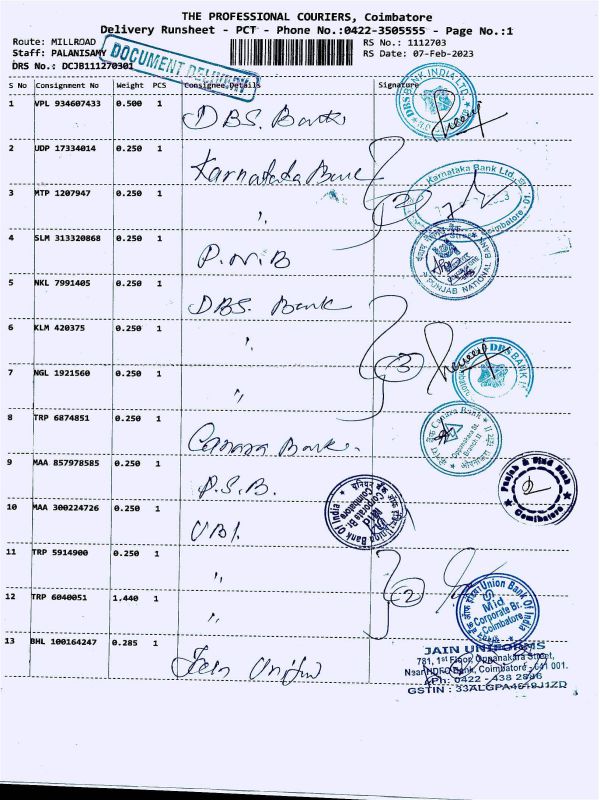 THE PROFESSIONAL COURIERS, Coimbatore
Delivery Runsheet - PCT - Phone No.:0422-3505555 - Page No.:1
Route: MILLROAD RS No.: 1112703
Staff: PALANISAMY RS Date: 07-Feb-2023
DRS No.: DCJB111270301
DOCUMENT DELIVERY
S No Consignment No Weight PCS Consignee Details Signature
1 VPL 934607433 0.500 1 DBS. Bank
DBS BANK INDIA LTD.
2 UDP 17334014 0.250 1 Karnataka Bank
Karnataka Bank Ltd.
3 MTP 1207947 0.250 1 "
2
4 SLM 313320868 0.250 1 P.N.B
PUNJAB NATIONAL BANK
5 NKL 7991405 0.250 1 DBS. Bank
6 KLM 420375 0.250 1 "
3
DBS BANK
7 NGL 1921560 0.250 1 "
8 TRP 6874851 0.250 1 Canara Bank.
Canara Bank
9 MAA 857978585 0.250 1 P.S.B.
Punjab & Sind Bank
Coimbatore
10 MAA 300224726 0.250 1 UBI.
Union Bank Of India
Mid
Corporate Br.
Coimbatore
11 TRP 5914900 0.250 1 "
2
12 TRP 6040051 1.440 1 "
Union Bank Of India
Mid
Corporate Br.
Coimbatore
13 BHL 100164247 0.285 1 Jain Uniform
JAIN UNIFORMS
781, 1st Floor, Oppanakara Street,
Near HDFC Bank, Coimbatore - 641 001.
Ph: 0422 - 438 2886
GSTIN :